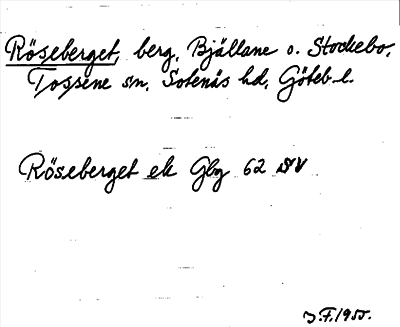 Röseberget, berg, Bjällane o. Stockebo,
Tossene sn, Sotenäs hd, Göteb. l.
Röseberget ek Gbg 62 SV
J.F. 1955.